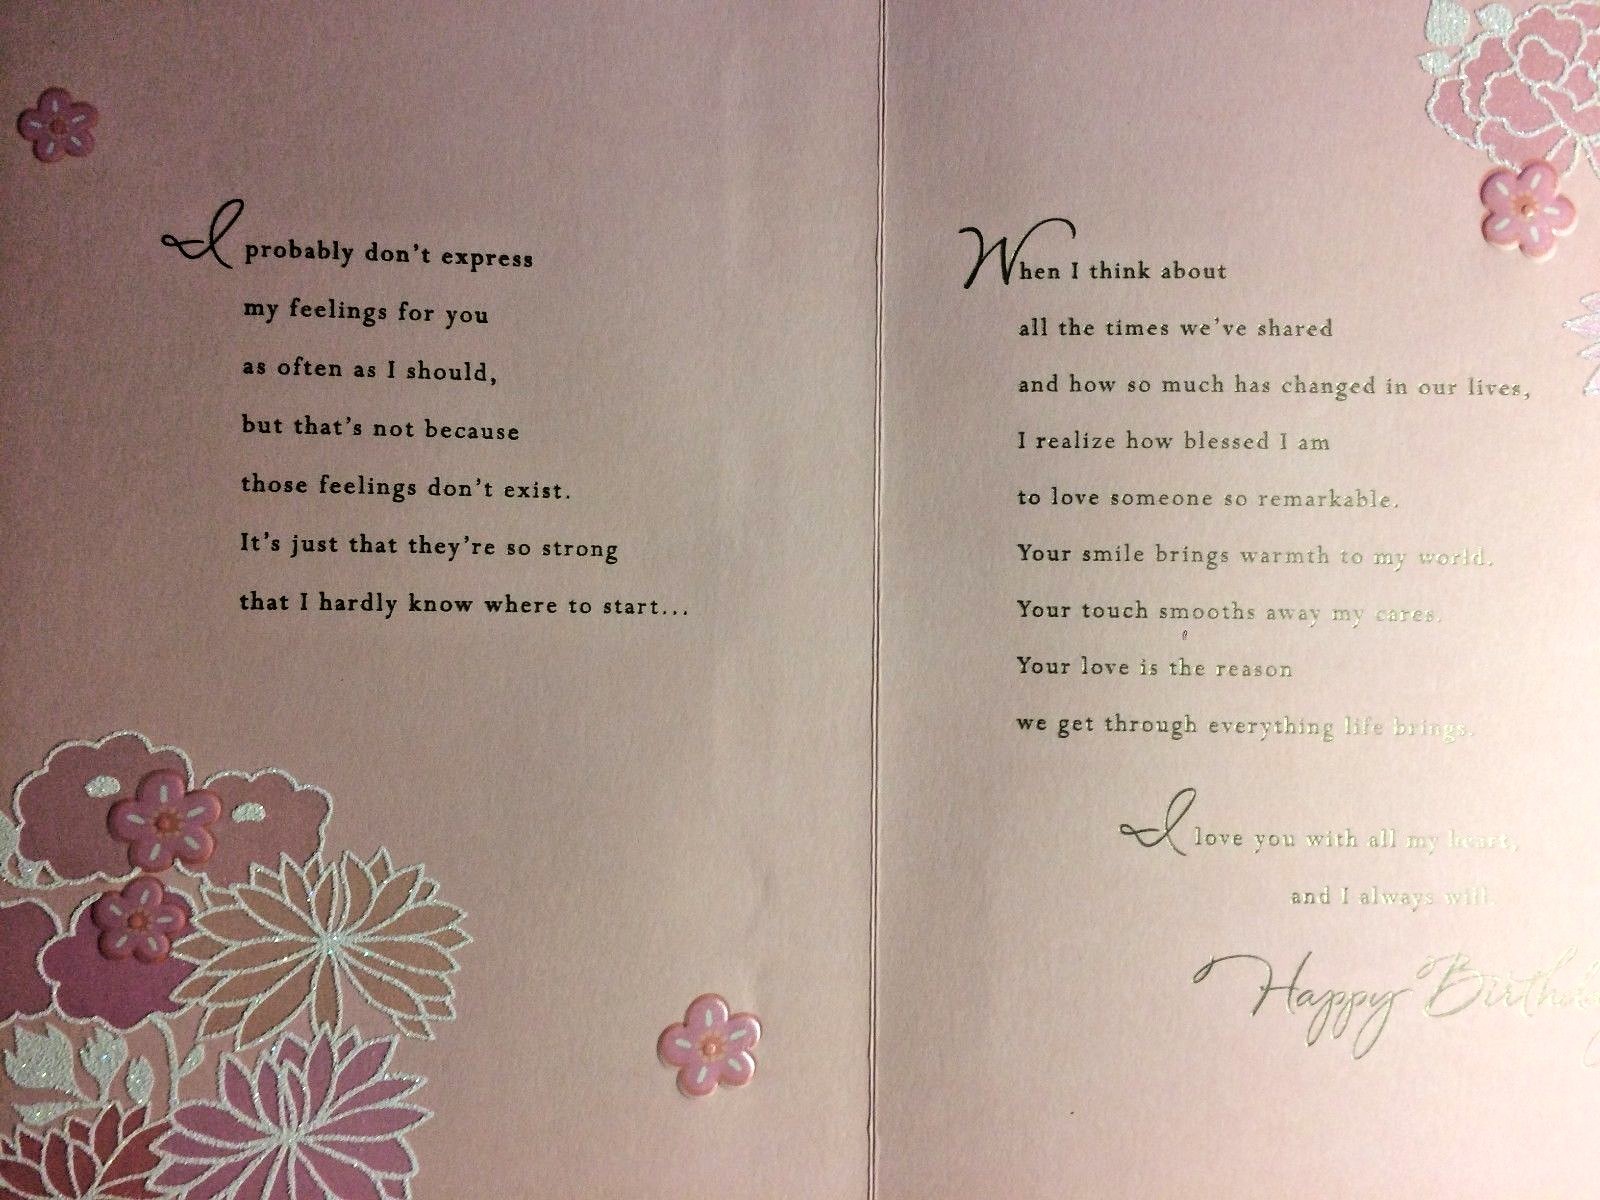 I probably don't express
my feelings for you
as often as I should,
but that's not because
those feelings don't exist.
It's just that they're so strong
that I hardly know where to start...
When I think about
all the times we've shared
and how so much has changed in our lives,
I realize how blessed I am
to love someone so remarkable.
Your smile brings warmth to my world.
Your touch smooths away my cares.
Your love is the reason
we get through everything life brings.
I love you with all my heart,
and I always will.
Happy Birthday